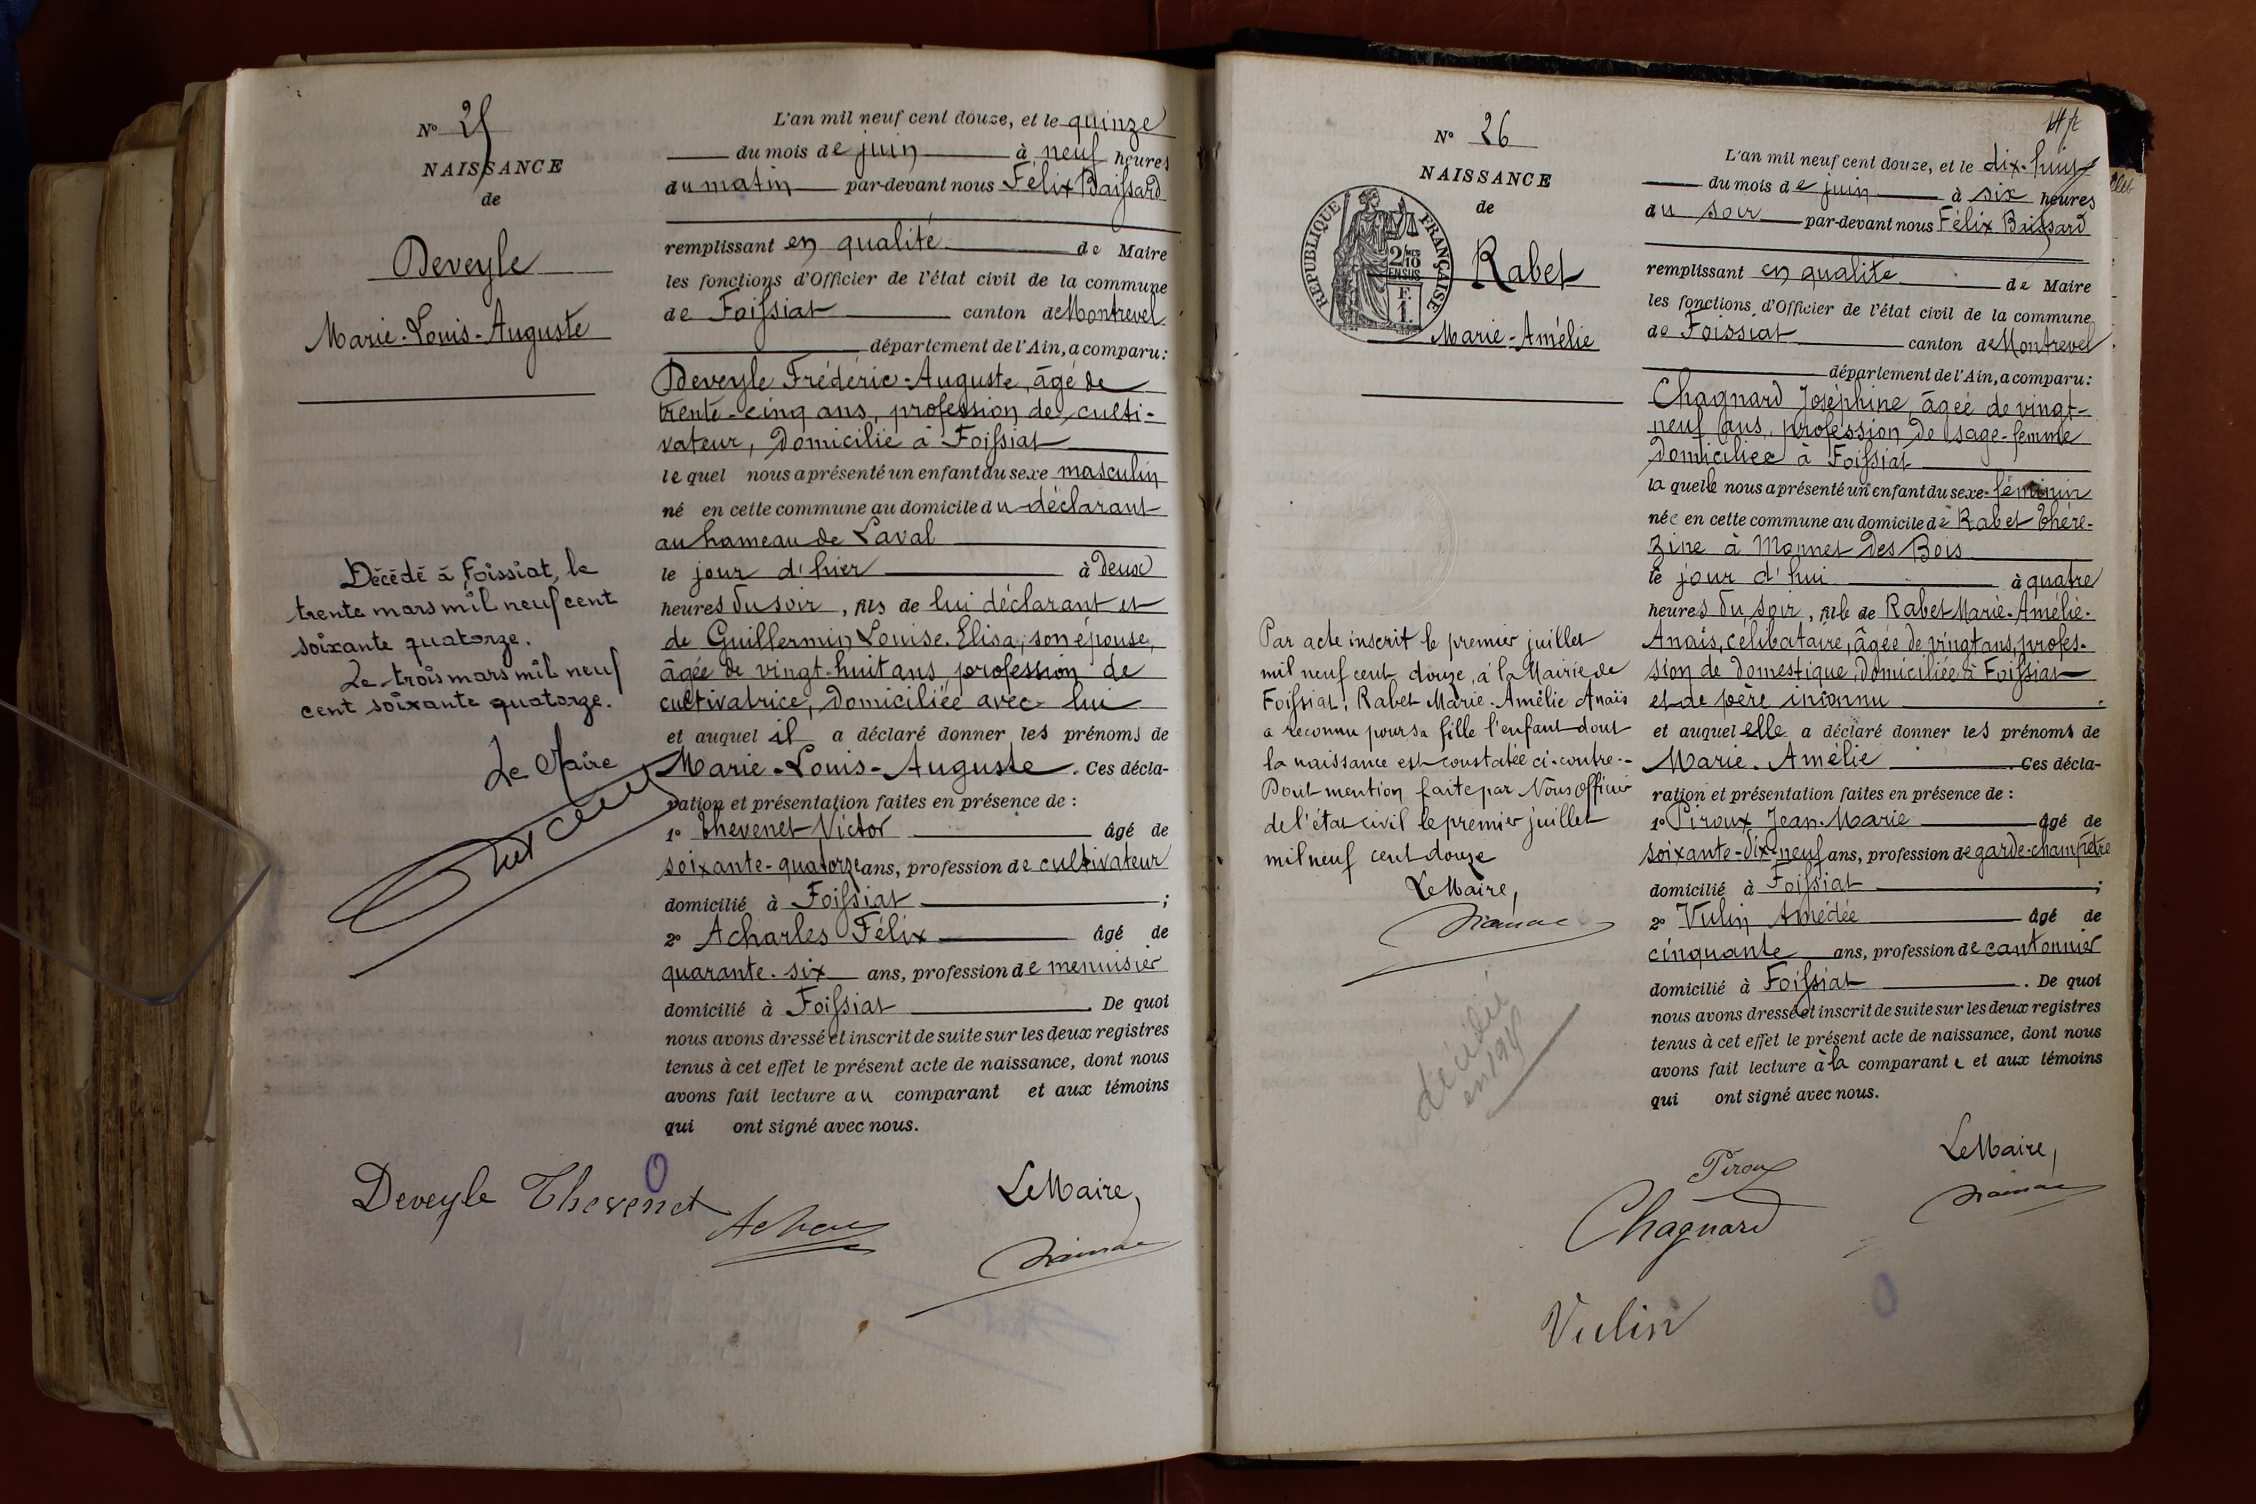 N° 25
NAISSANCE
de
Deveyle
Marie-Louis-Auguste
Décédé à Foissiat, le
trente mars mil neuf cent
soixante quatorze.
Le trois mars mil neuf
cent soixante quatorze.
Le Maire
L'an mil neuf cent douze, et le quinze
du mois de juin à neuf heures
du matin par-devant nous Félix Baissard
remplissant en qualité de Maire
les fonctions d'Officier de l'état civil de la commune
de Foissiat canton de Montrevel
département de l'Ain, a comparu:
Deveyle Fréderic-Auguste, âgé de
trente-cinq ans, profession de culti-
vateur, domicilié à Foissiat
le quel nous a présenté un enfant du sexe masculin
né en cette commune au domicile du déclarant
au hameau de Laval
le jour d'hier à deux
heures du soir, fils de lui déclarant et
de Guillermin Louise-Elisa, son épouse,
âgée de vingt-huit ans, profession de
cultivatrice, domiciliée avec lui
et auquel il a déclaré donner les prénoms de
Marie-Louis-Auguste. Ces décla-
ration et présentation faites en présence de :
1° Thevenet Victor âgé de
soixante-quatorze ans, profession de cultivateur
domicilié à Foissiat ;
2° Acharles Félix âgé de
quarante-six ans, profession de menuisier
domicilié à Foissiat. De quoi
nous avons dressé et inscrit de suite sur les deux registres
tenus à cet effet le présent acte de naissance, dont nous
avons fait lecture au comparant et aux témoins
qui ont signé avec nous.
Deveyle Thevenet
Le Maire,
N° 26
NAISSANCE
de
REPUBLIQUE FRANÇAISE
2/10 EN SUS
Rabet
Marie-Amélie
Par acte inscrit le premier juillet
mil neuf cent douze, à la Mairie de
Foissiat, Rabet Marie-Amélie Anaïs
a reconnu pour sa fille l'enfant dont
la naissance est constatée ci-contre.-
Dont mention faite par Nous Officier
de l'état civil le premier juillet
mil neuf cent douze
Le Maire,
décédée
L'an mil neuf cent douze, et le dix-huit
du mois de juin à six heures
du soir par-devant nous Félix Baissard
remplissant en qualité de Maire
les fonctions d'Officier de l'état civil de la commune
de Foissiat canton de Montrevel
département de l'Ain, a comparu:
Chagnard Joséphine, âgée de vingt-
neuf ans, profession de sage-femme
domiciliée à Foissiat
la quelle nous a présenté un enfant du sexe féminin
née en cette commune au domicile de Rabet Thére-
zine à Monnet des Bois
le jour d'hui à quatre
heures du soir, fille de Rabet Marie-Amélie-
Anaïs, célibataire, âgée de vingt ans, profes-
sion de domestique, domiciliée à Foissiat
et de père inconnu
et auquel elle a déclaré donner les prénoms de
Marie-Amélie. Ces décla-
ration et présentation faites en présence de :
1° Piroux Jean-Marie âgé de
soixante-dix-neuf ans, profession de garde-champêtre
domicilié à Foissiat ;
2° Vulin Amédée âgé de
cinquante ans, profession de cantonnier
domicilié à Foissiat. De quoi
nous avons dressé et inscrit de suite sur les deux registres
tenus à cet effet le présent acte de naissance, dont nous
avons fait lecture à la comparante et aux témoins
qui ont signé avec nous.
Piroux
Le Maire,
Chagnard
Vulin